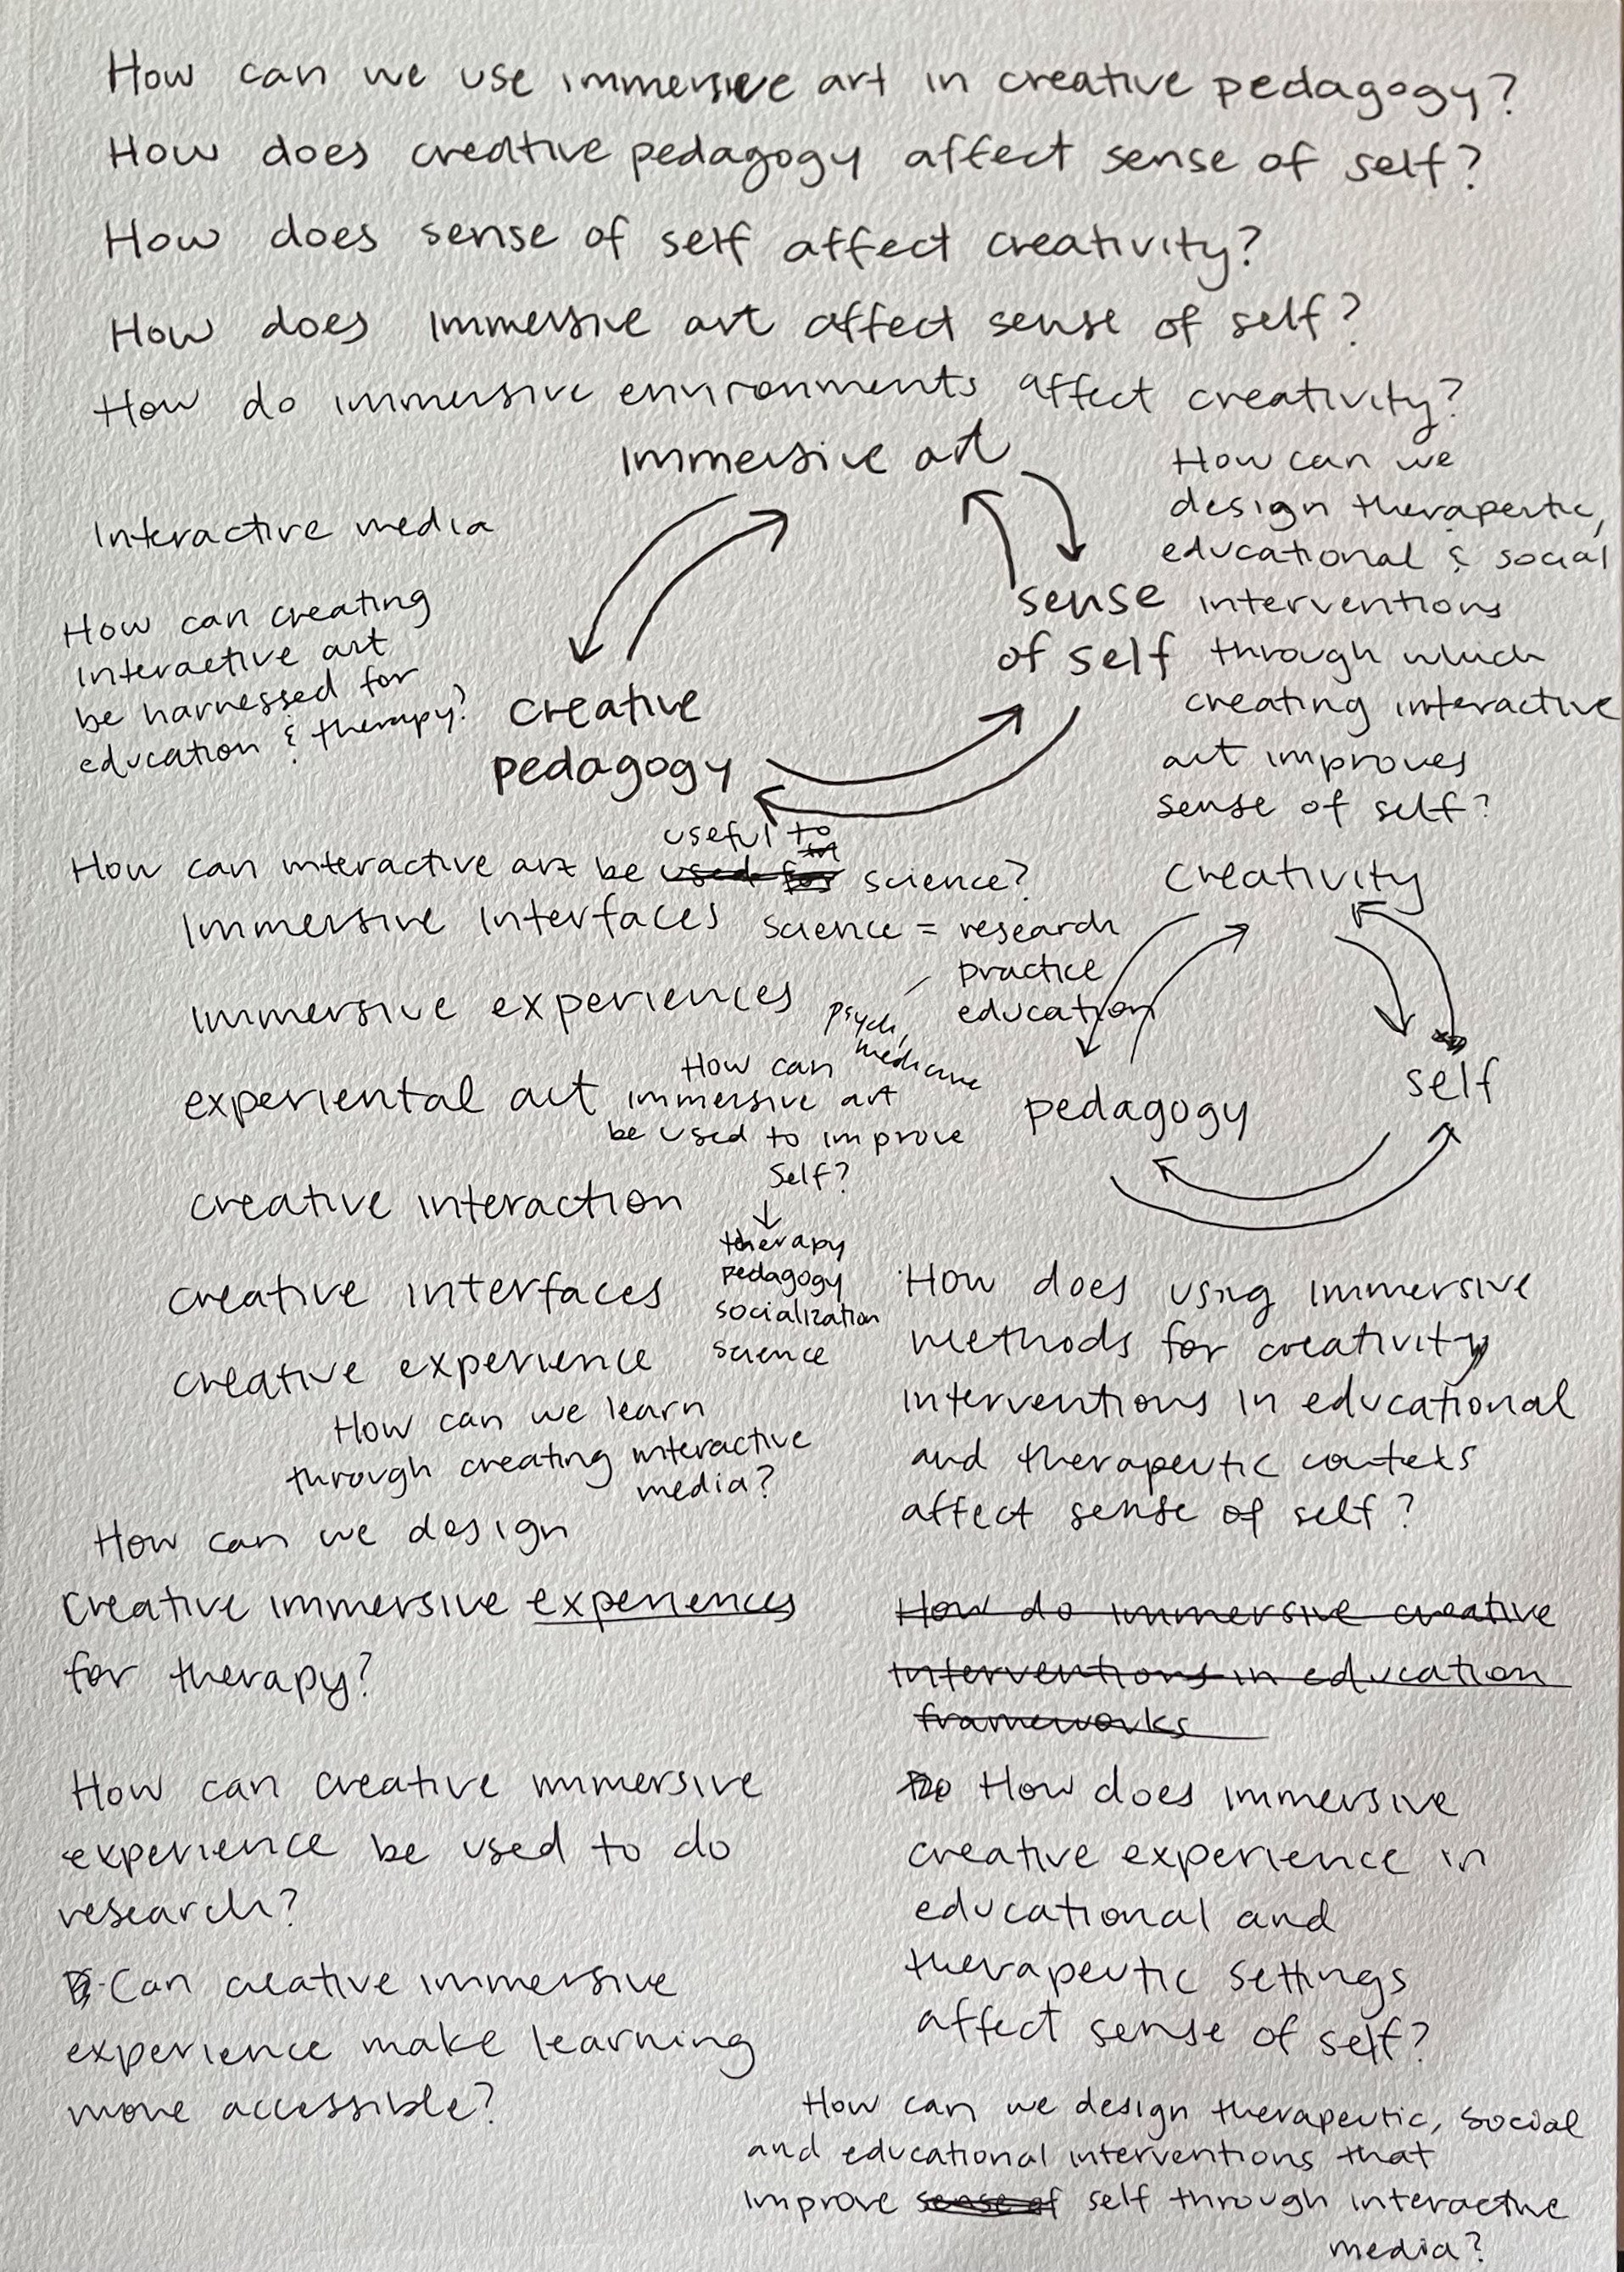 How can we use immersive art in creative pedagogy?
How does creative pedagogy affect sense of self?
How does sense of self affect creativity?
How does immersive art affect sense of self?
How do immersive environments affect creativity?
immersive art
sense
of self
creative
pedagogy
Interactive media
How can creating
interactive art
be harnessed for
education & therapy?
How can we
design therapeutic,
educational & social
interventions
through which
creating interactive
art improves
sense of self?
useful to
How can interactive art be used for science?
science = research
practice
education
psych,
medicine
Immersive interfaces
immersive experiences
experiental art
creative interaction
creative interfaces
creative experience
How can
immersive art
be used to improve
self?
therapy
pedagogy
socialization
science
creativity
self
pedagogy
How can we learn
through creating interactive
media?
How can we design
creative immersive experiences
for therapy?
How can creative immersive
experience be used to do
research?
Can creative immersive
experience make learning
more accessible?
How does using immersive
methods for creativity
interventions in educational
and therapeutic contexts
affect sense of self?
How do immersive creative
interventions in education
frameworks
How does immersive
creative experience in
educational and
therapeutic settings
affect sense of self?
How can we design therapeutic, social
and educational interventions that
improve sense of self through interactive
media?